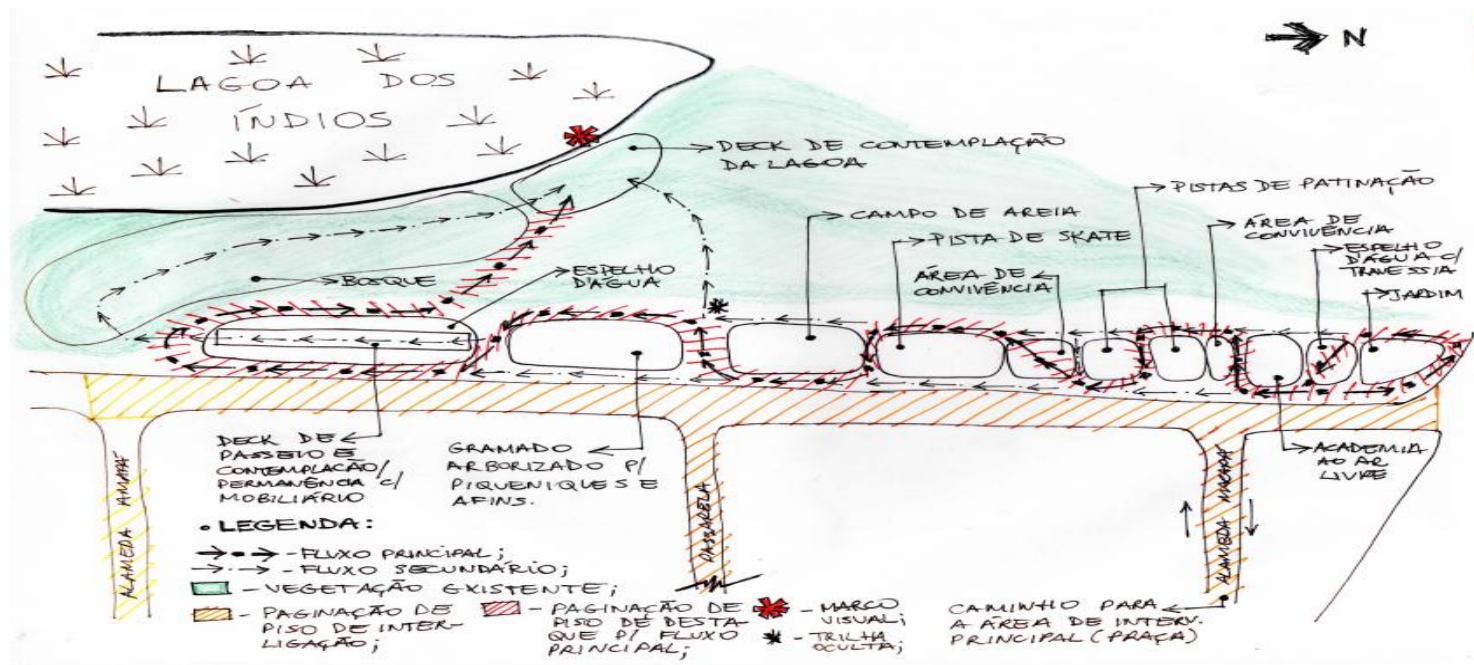 N
LAGOA DOS
ÍNDIOS
DECK DE CONTEMPLAÇÃO
DA LAGOA
PISTAS DE PATINAÇÃO
CAMPO DE AREIA
ÁREA DE
CONVIVÊNCIA
PISTA DE SKATE
ESPELHO
D'ÁGUA C/
TRAVESSIA
BOSQUE
ESPELHO
D'ÁGUA
ÁREA DE
CONVIVÊNCIA
JARDIM
DECK DE
PASSEIO E
CONTEMPLAÇÃO/
PERMANÊNCIA C/
MOBILIÁRIO
GRAMADO
ARBORIZADO P/
PIQUENIQUES E
AFINS.
ACADEMIA
AO AR
LIVRE
ALAMEDA AMAPÁ
PASSARELA
ALAMEDA MACAPÁ
• LEGENDA:
- FLUXO PRINCIPAL;
- FLUXO SECUNDÁRIO;
- VEGETAÇÃO EXISTENTE;
- PAGINAÇÃO DE
PISO DE INTER-
LIGAÇÃO;
- PAGINAÇÃO DE
PISO DE DESTA-
QUE P/ FLUXO
PRINCIPAL;
- MARCO
VISUAL;
- TRILHA
OCULTA;
CAMINHO PARA
A ÁREA DE INTERV.
PRINCIPAL (PRAÇA)